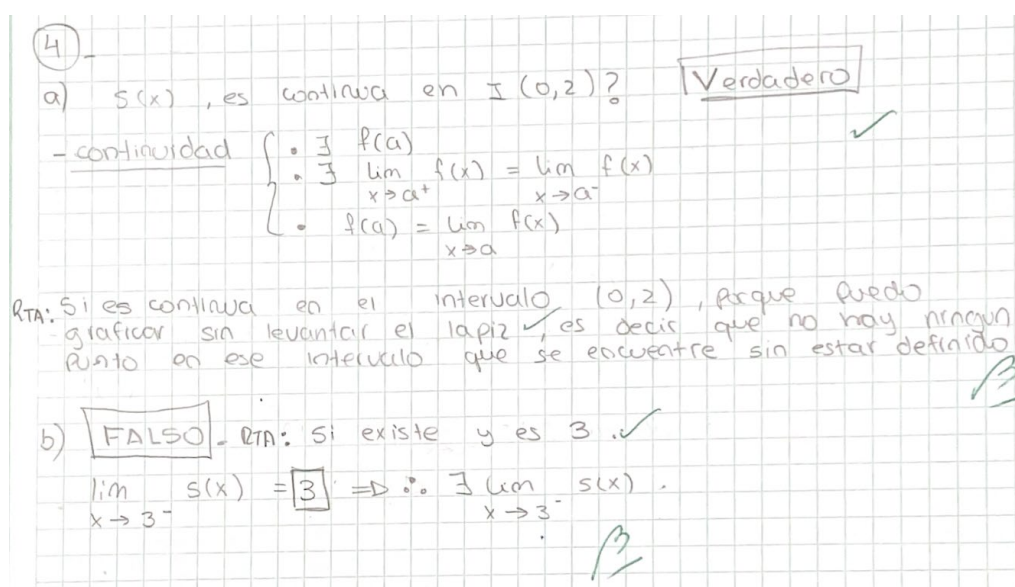 4-
a) S(x), es continua en I (0,2)? Verdadero
- continuidad { • ∃ f(a)
• ∃ lim x→a⁺ f(x) = lim x→a⁻ f(x)
• f(a) = lim x→a f(x)
RTA: Si es continua en el intervalo (0,2), porque puedo
graficar sin levantar el lapiz, es decir que no hay ningun
punto en ese intervalo que se encuentre sin estar definido
b) FALSO - RTA: Si existe y es 3.
lim x→3⁻ S(x) = 3 => ∴ ∃ lim x→3⁻ S(x).